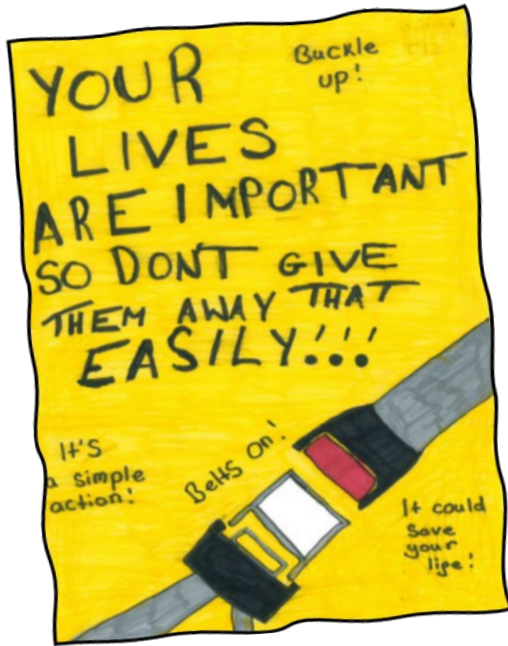 Buckle
up!
YOUR
LIVES
ARE IMPORTANT
SO DONT GIVE
THEM AWAY THAT
EASILY!!!
It's
a simple
action!
Belts on!
It could
save
your
life!